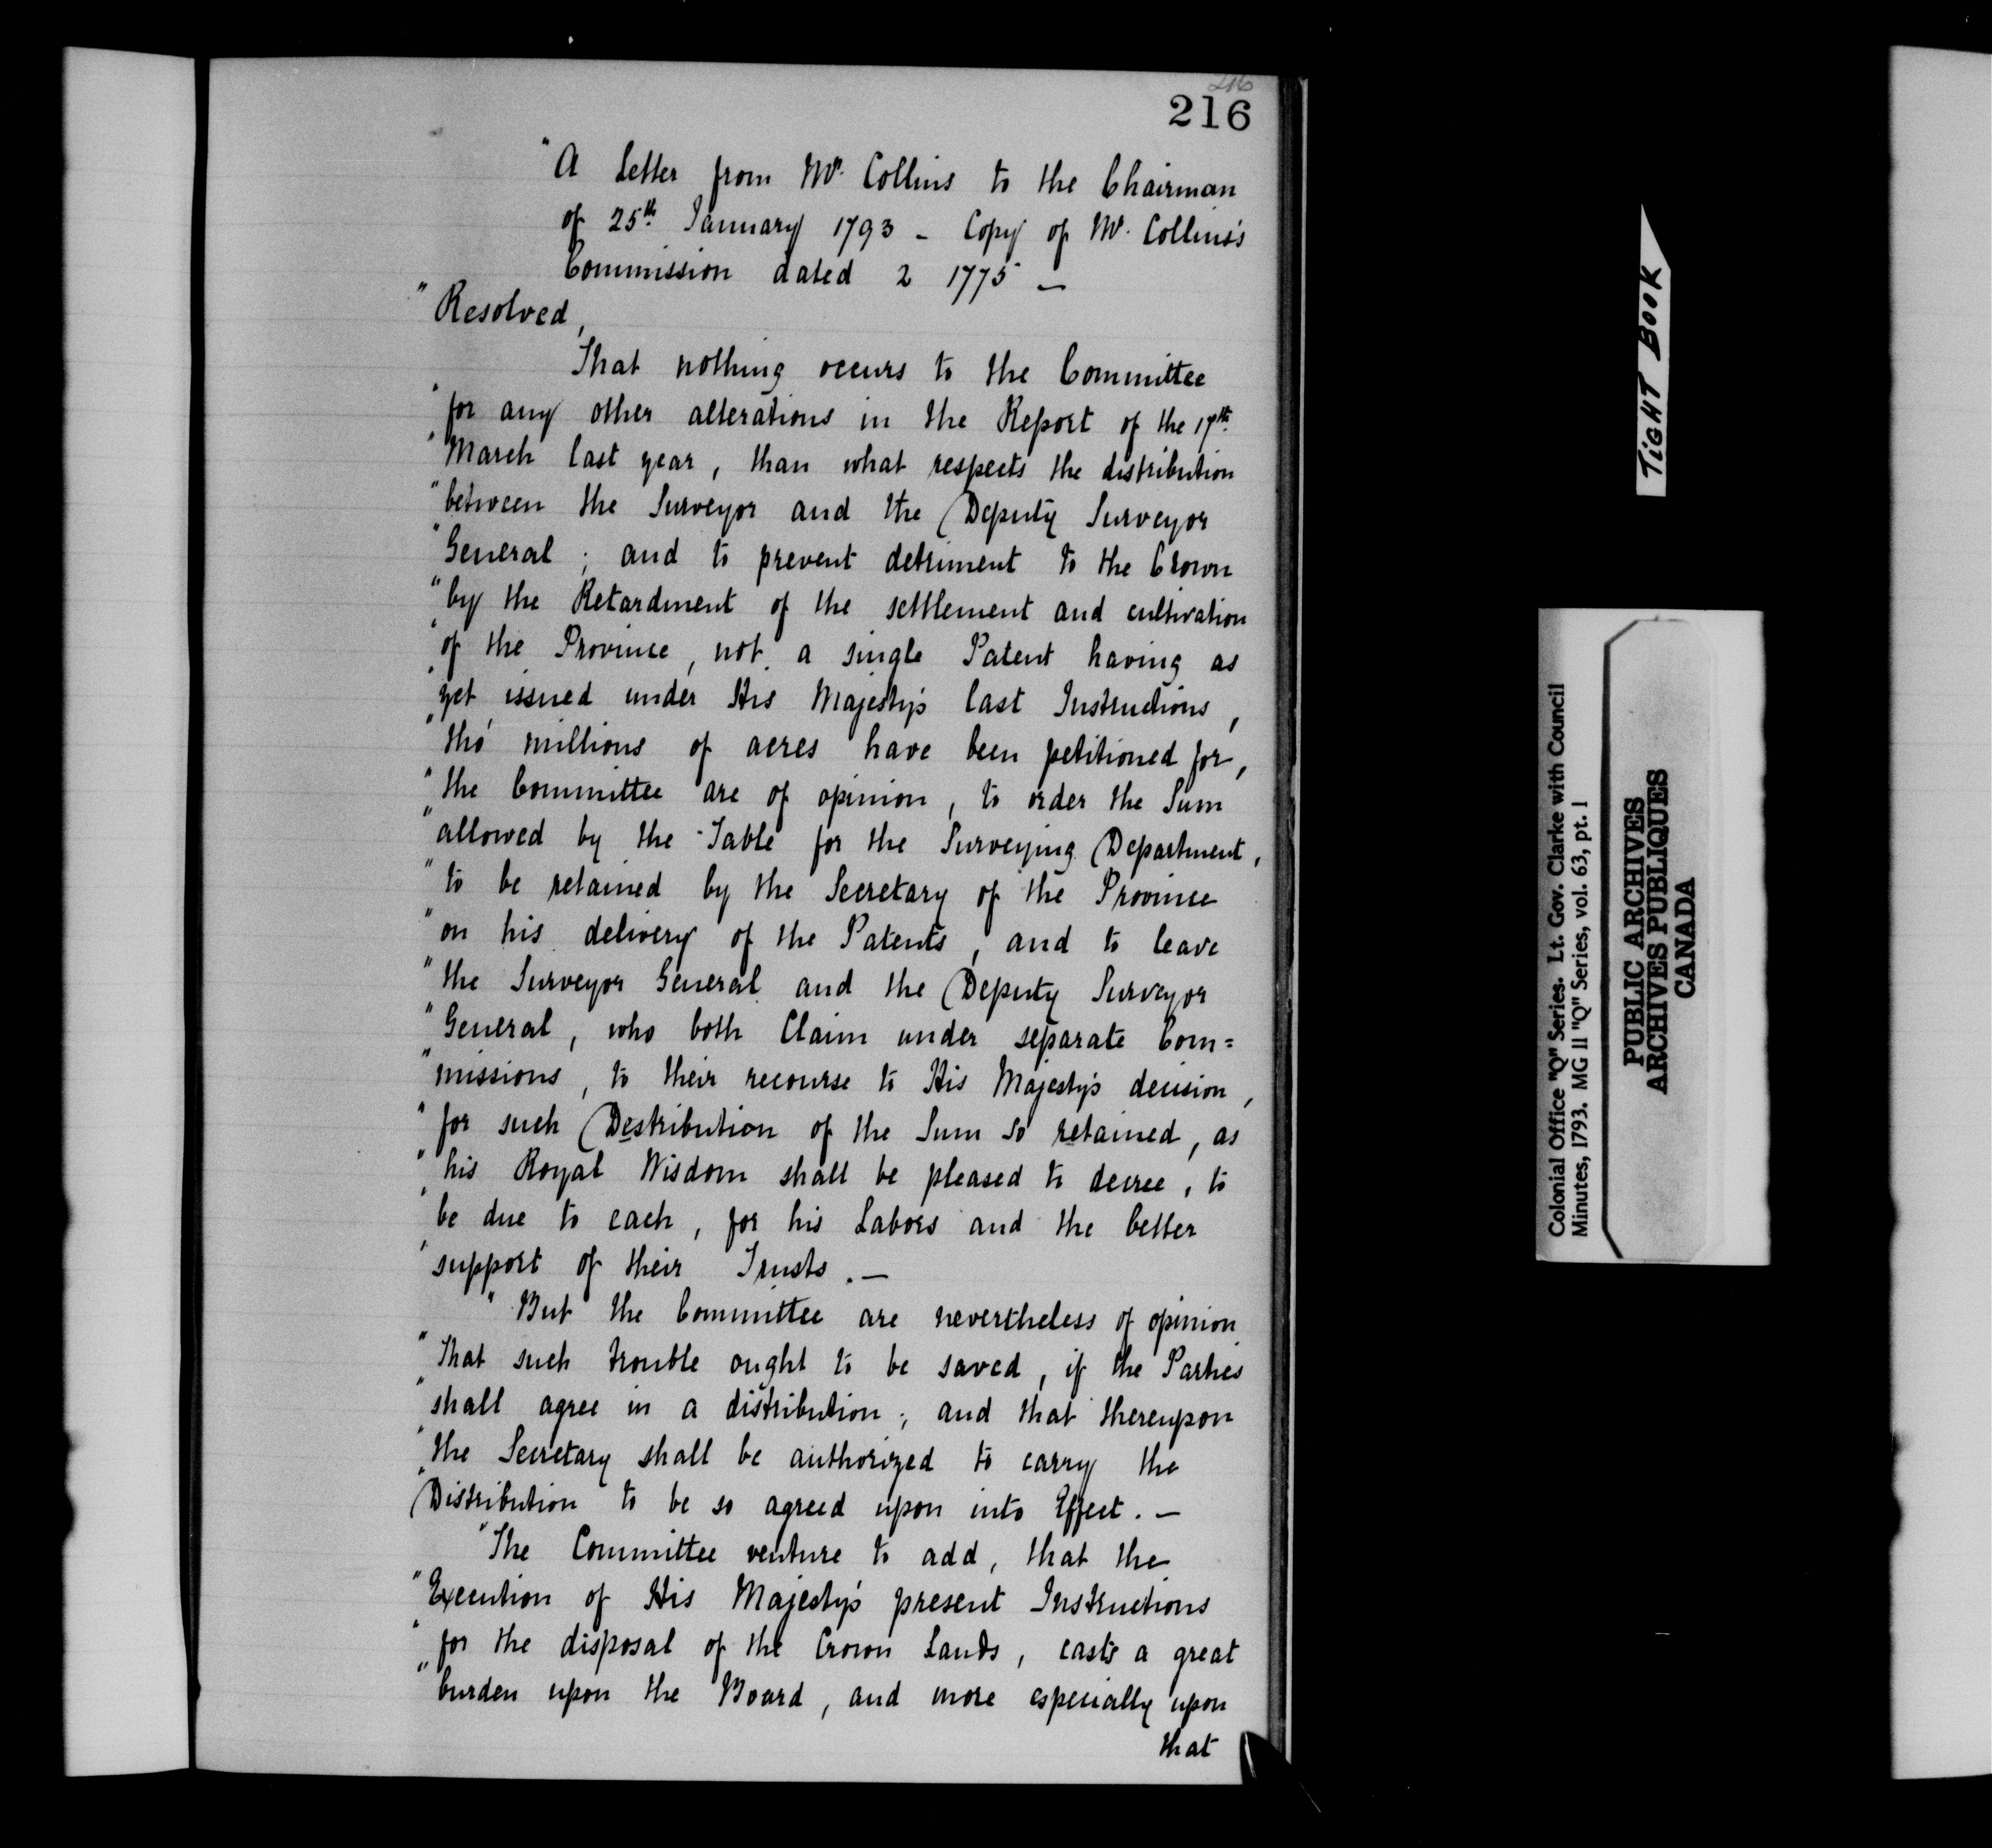 216
216
"A Letter from Mr. Collins to the Chairman
of 25th January 1793 - Copy of Mr. Collins's
Commission dated 2 1775 —
"Resolved,
That nothing occurs to the Committee
"for any other alterations in the Report of the 17th
"March last year, than what respects the distribution
"between the Surveyor and the Deputy Surveyor
"General; and to prevent detriment to the Crown
"by the Retardment of the settlement and cultivation
"of the Province, not a single Patent having as
"yet issued under His Majesty's last Instructions,
"tho' millions of acres have been petitioned for,
"the Committee are of opinion, to order the Sum
"allowed by the Table for the Surveying Department,
"to be retained by the Secretary of the Province
"on his delivery of the Patents, and to leave
"the Surveyor General and the Deputy Surveyor
"General, who both Claim under separate Com=
"missions, to their recourse to His Majesty's decision,
"for such Destribution of the Sum so retained, as
"his Royal Wisdom shall be pleased to decree, to
"be due to each, for his Labors and the better
"support of their Trusts. —
"But the Committee are nevertheless of opinion
"That such trouble ought to be saved, if the Parties
"shall agree in a distribution; and that thereupon
"the Secretary shall be authorized to carry the
"Distribution to be so agreed upon into Effect. —
"The Committee venture to add, that the
"Execution of His Majesty's present Instructions
"for the disposal of the Crown Lands, casts a great
"burden upon the Board, and more especially upon
that
TIGHT BOOK
Colonial Office "Q" Series. Lt. Gov. Clarke with Council
Minutes, 1793. MG 11 "Q" Series, vol. 63, pt. 1
PUBLIC ARCHIVES
ARCHIVES PUBLIQUES
CANADA